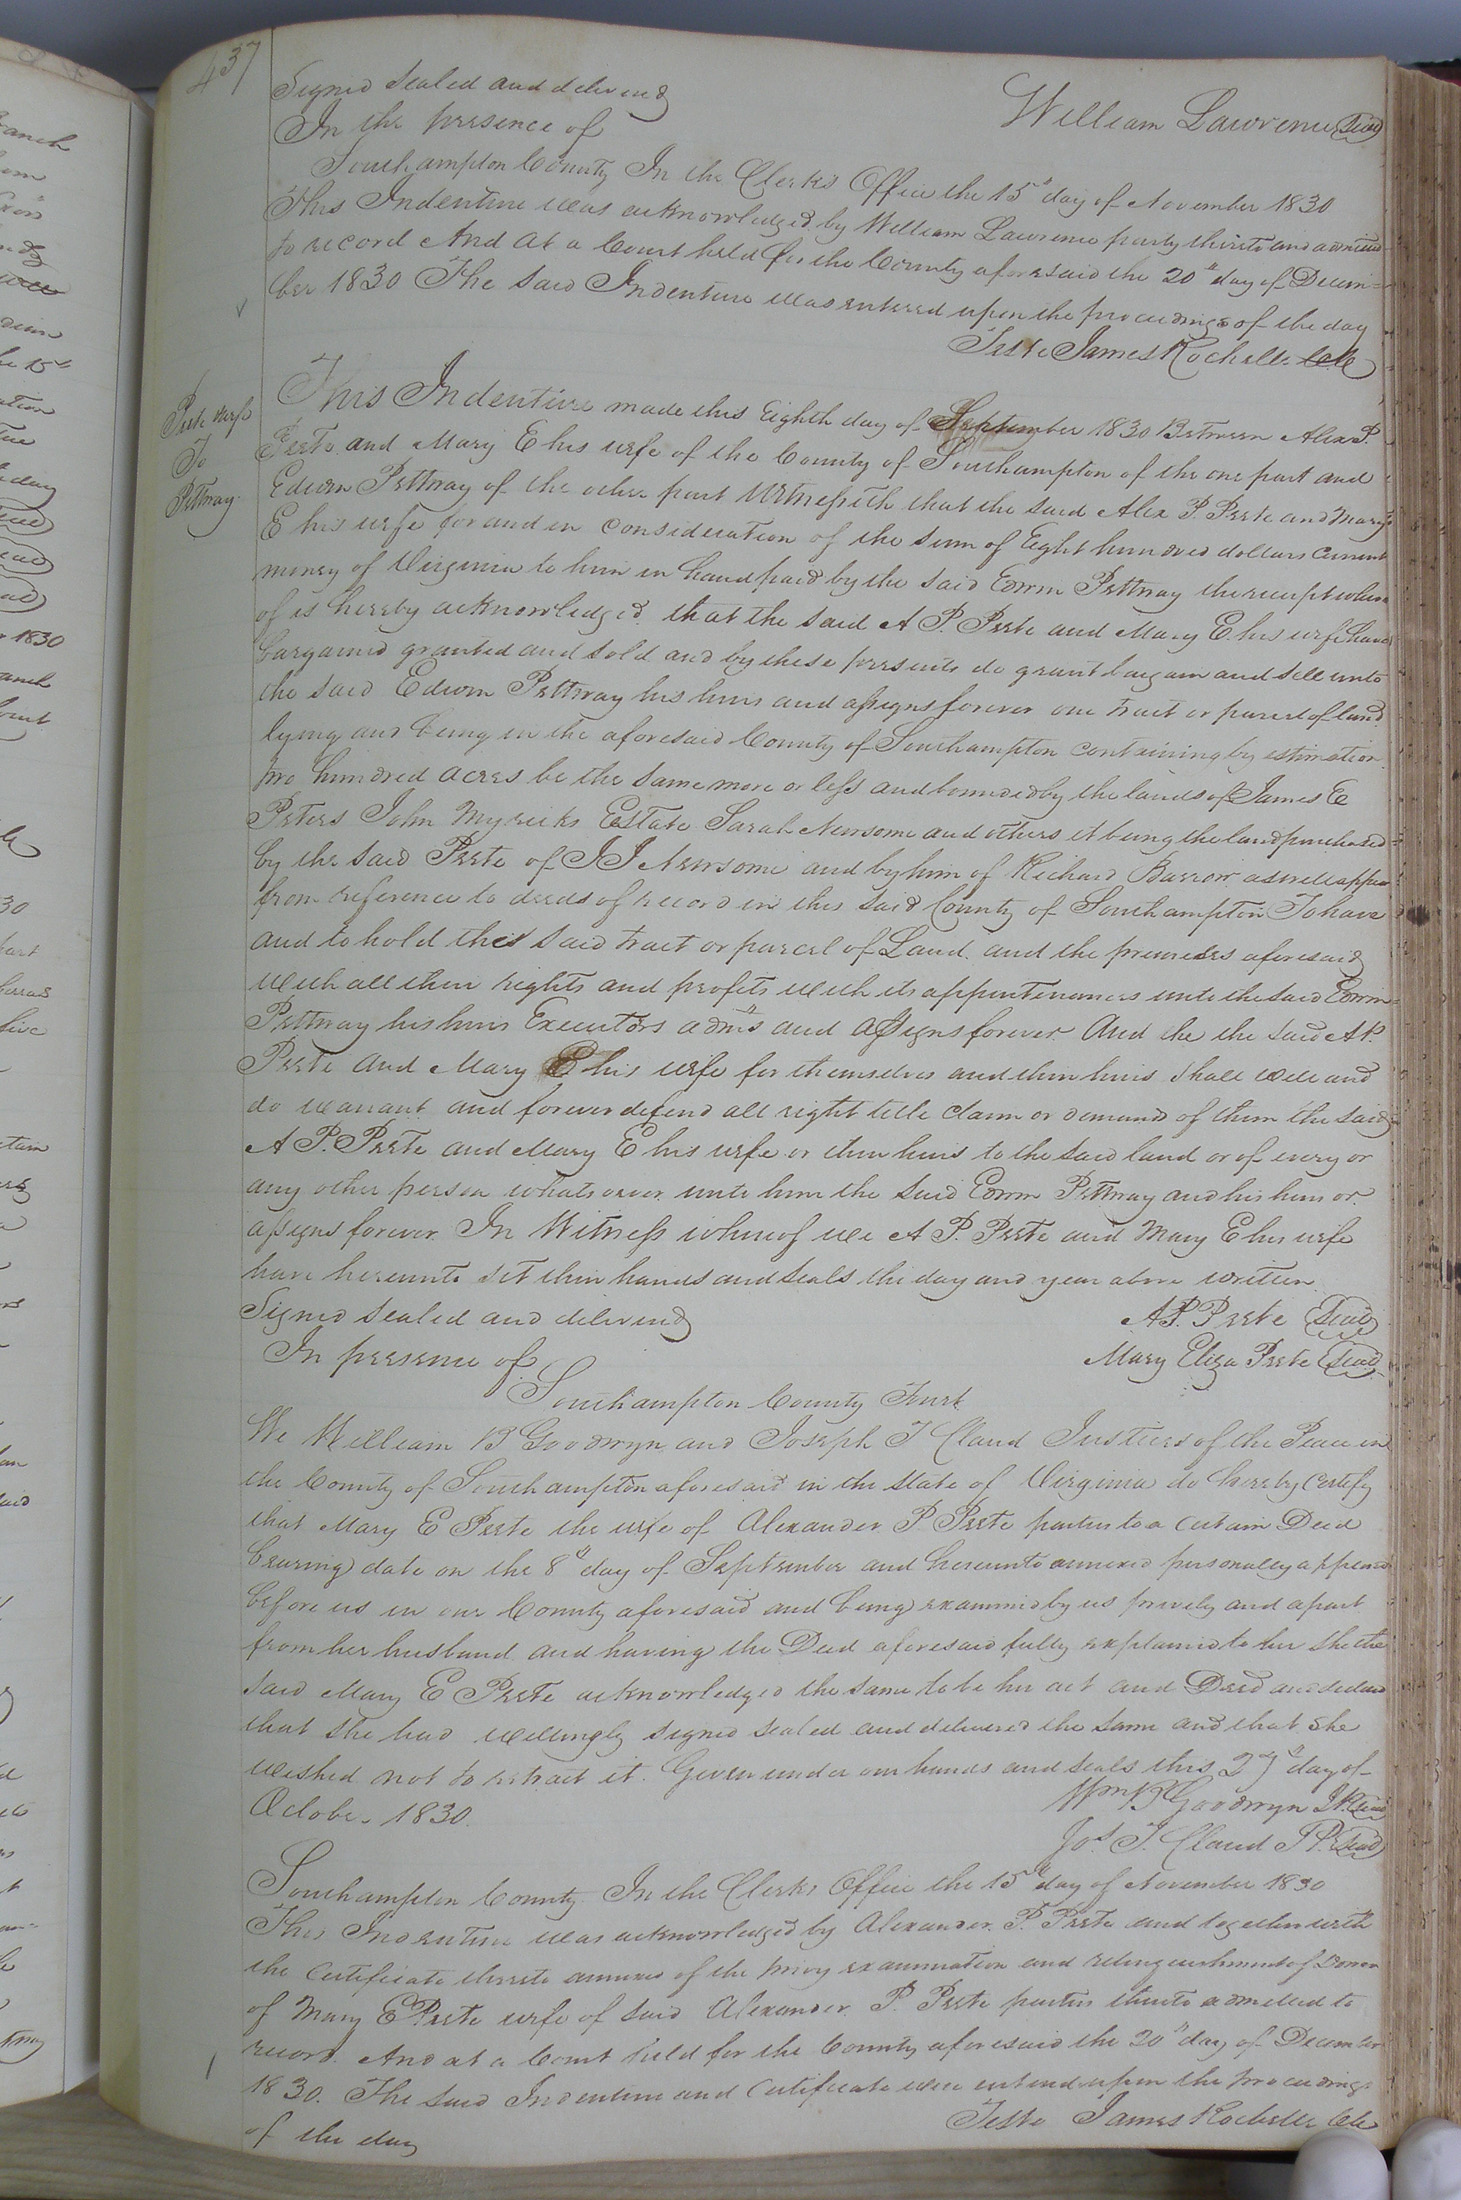 437
Signed Sealed and delivered
In the presence of
William Lawrence Seal
Southampton County In the Clerks Office the 15th day of November 1830
This Indenture was acknowledged by William Lawrence party thereto and admitted
to record And At a Court held for the County aforesaid the 20th day of Decem=
ber 1830 The said Indenture was entered upon the proceedings of the day
Teste James Rochelle Clk
Peete & wife
To
Pettway
This Indenture made this Eighth day of September 1830 Between Alex P.
Peete and Mary E his wife of the County of Southampton of the one part and
Edwin Pettway of the other part Witnesseth that the said Alex P. Peete and Mary
E his wife for and in consideration of the sum of Eight hundred dollars current
money of Virginia to him in hand paid by the said Edwin Pettway the receipt where
of is hereby acknowledged that the said A P. Peete and Mary E. his wife have
bargained granted and sold and by these presents do grant bargain and sell unto
the said Edwin Pettway his heirs and assigns forever one tract or parcel of land
lying and being in the aforesaid County of Southampton containing by estimation
two hundred acres be the same more or less and bounded by the lands of James E
Peters John Myricks Estate Sarah Newsome and others it being the land purchased
by the said Peete of J J Newsome and by him of Richard Barrow as will appear
from reference to deeds of record in the said County of Southampton To have
and to hold the said tract or parcel of Land and the premises aforesaid
with all their rights and profits with its appurtenances unto the said Edwin
Pettway his heirs Executors admrs and assigns forever And the the said A P.
Peete and Mary E his wife for themselves and their heirs shall will and
do warrant and forever defend all right title claim or demand of them the said
A P. Peete and Mary E his wife or their heirs to the said land or of every or
any other person whatsoever unto him the said Edwin Pettway and his heirs or
assigns forever. In Witness whereof we A P. Peete and Mary E his wife
have hereunto set their hands and seals the day and year above written
Signed Sealed and delivered
In presence of
A.P. Peete Seal
Mary Eliza Peete Seal
Southampton County Towit
We William B Goodwyn and Joseph T Claud Justices of the Peace in
the County of Southampton aforesaid in the State of Virginia do hereby certify
that Mary E Peete the wife of Alexander P Peete parties to a certain Deed
bearing date on the 8th day of September and hereunto annexed personally appeared
before us in our County aforesaid and being examined by us privily and apart
from her husband and having the Deed aforesaid fully explained to her she the
said Mary E Peete acknowledged the same to be her act and Deed and declared
that she had willingly signed sealed and delivered the same and that she
wished not to retract it. Given under our hands and seals this 27th day of
October 1830.
Wm B Goodwyn J.P. Seal
Jos. T. Claud J P. Seal
Southampton County In the Clerks Office the 15th day of November 1830
This Indenture was acknowledged by Alexander P. Peete and together with
the Certificate thereto annexed of the privy examination and relinquishment of Dower
of Mary E Peete wife of said Alexander P. Peete parties thereto admitted to
record. And at a Court held for the County aforesaid the 20th day of December
1830. The said Indenture and Certificate were entered upon the proceedings
of the day
Teste James Rochelle Clk